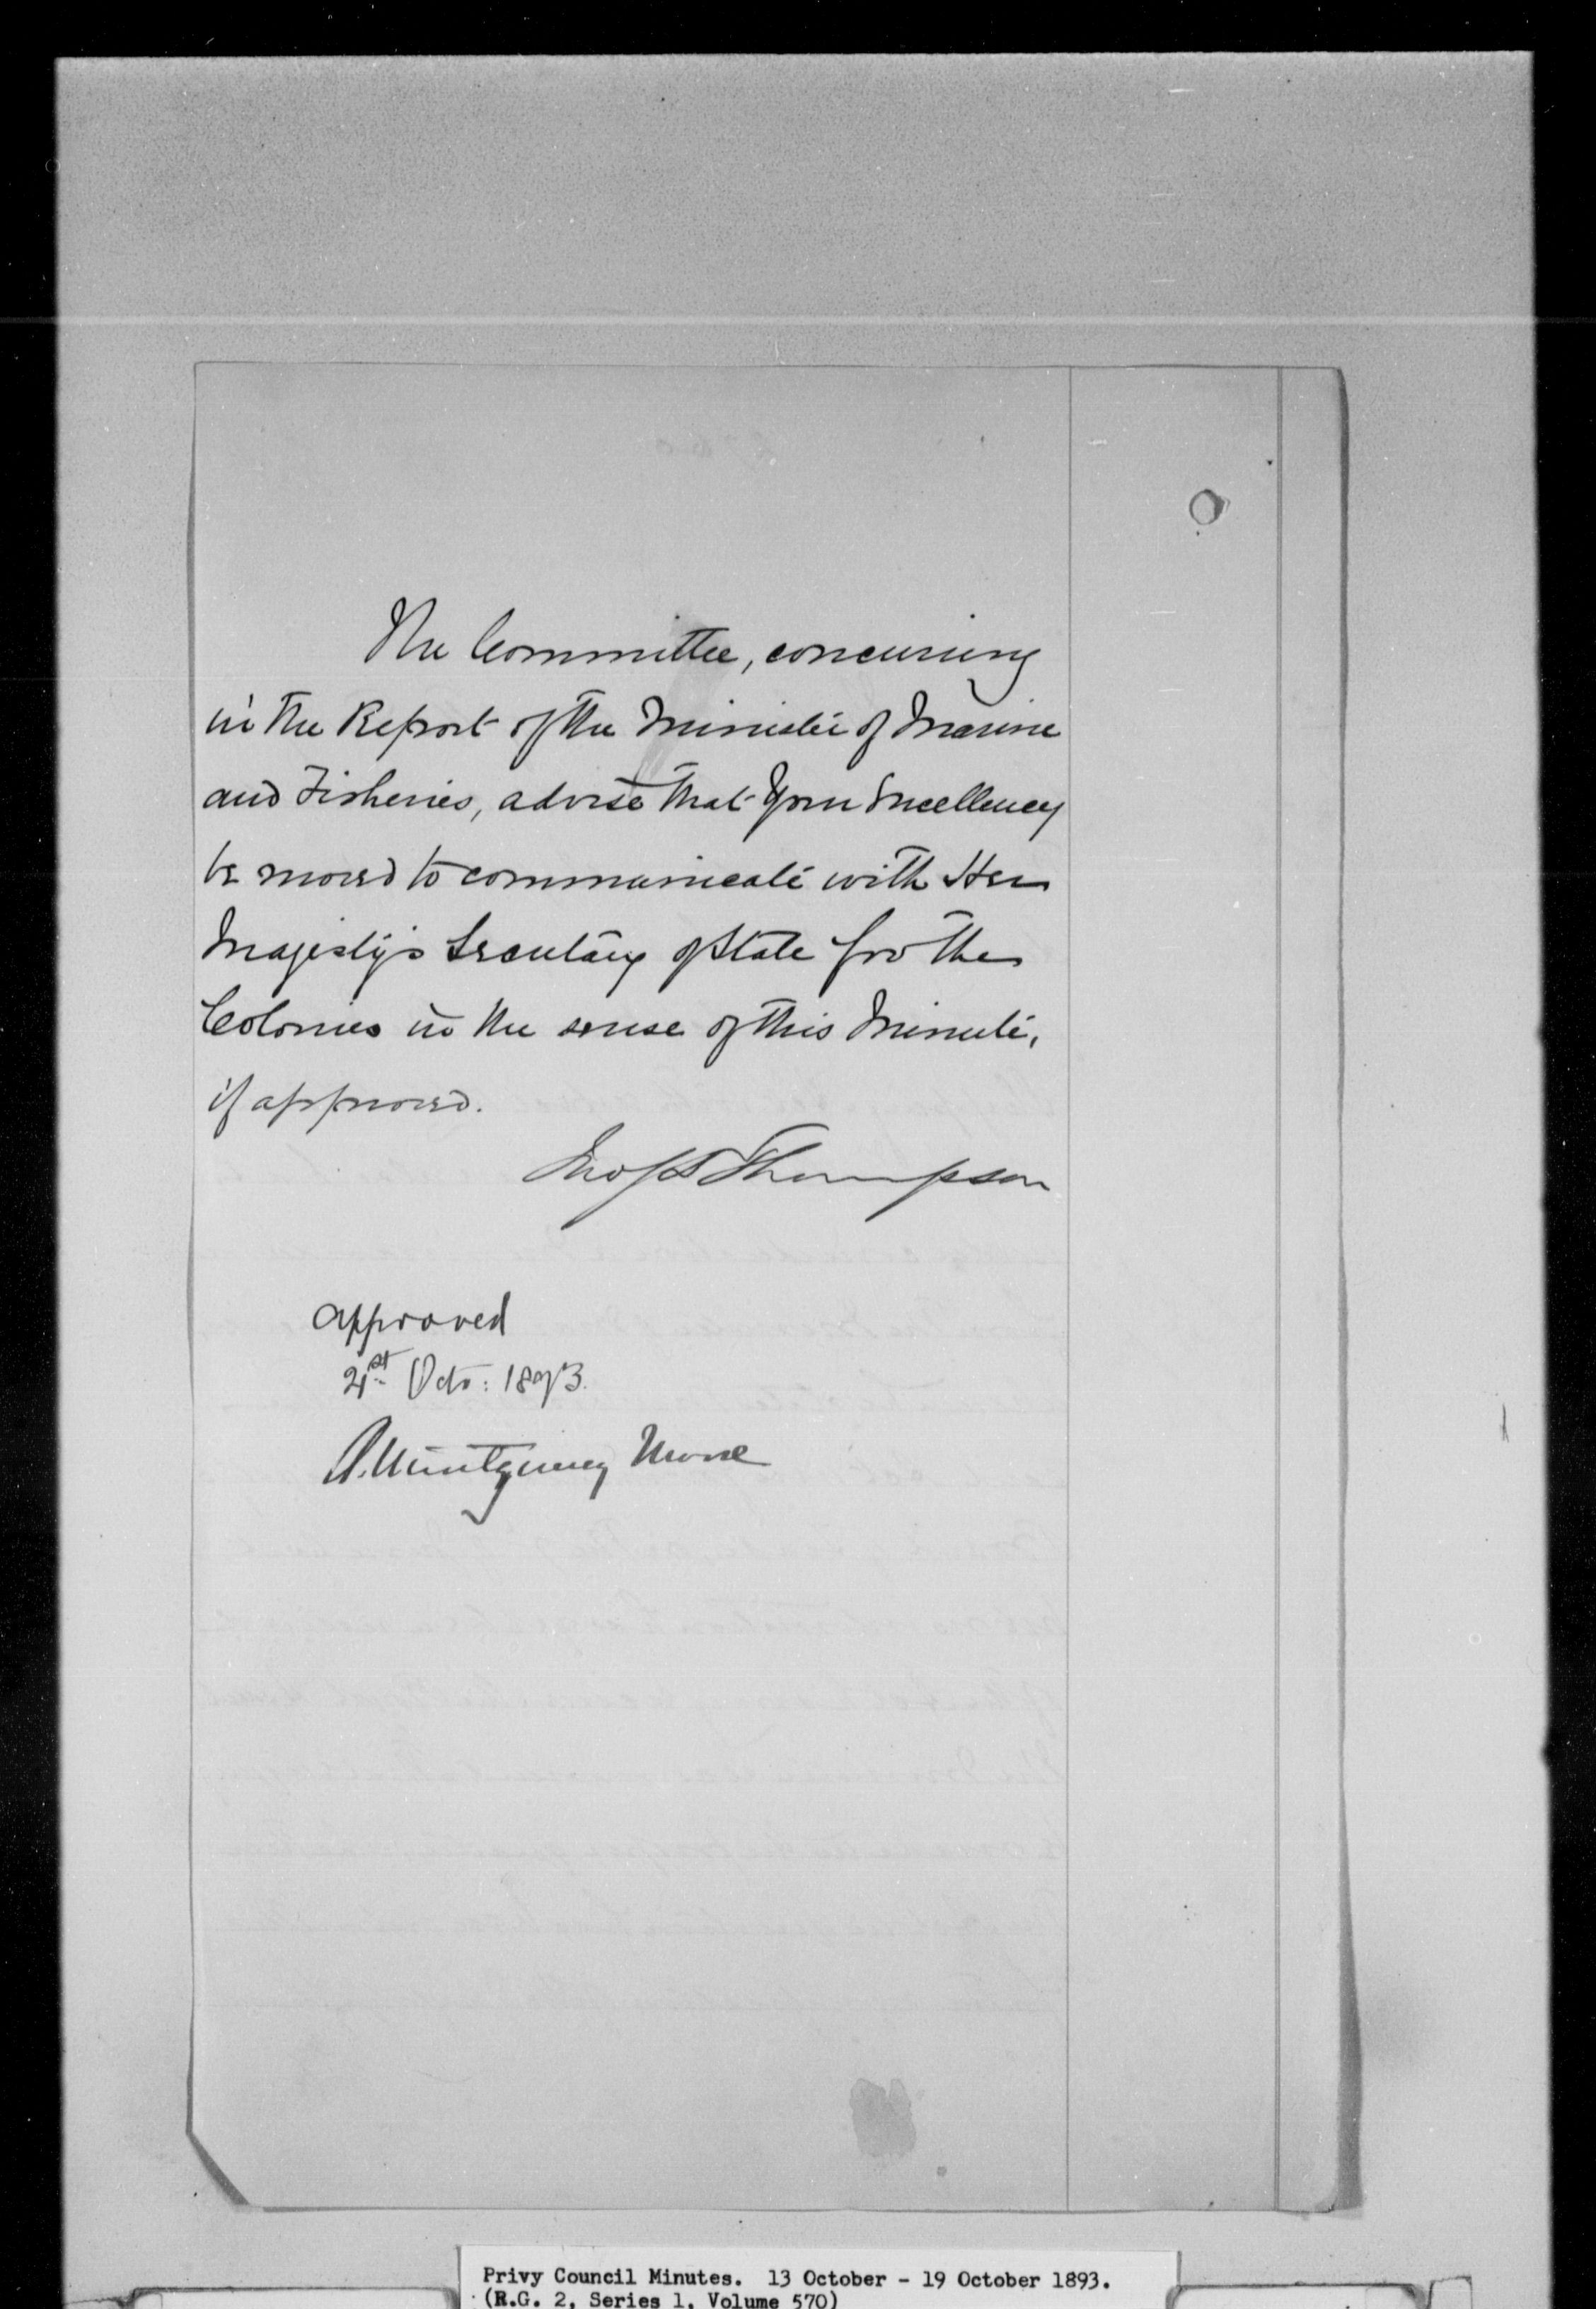 The Committee, concurring
in the Report of the Minister of Marine
and Fisheries, advise that Your Excellency
be moved to communicate with Her
Majesty's Secretary of State for the
Colonies in the sense of this Minute,
if approved.
Jno S D Thompson
approved
21st Octo: 1893.
A. Montgomery Moore
Privy Council Minutes. 13 October - 19 October 1893.
(R.G. 2, Series 1, Volume 570)